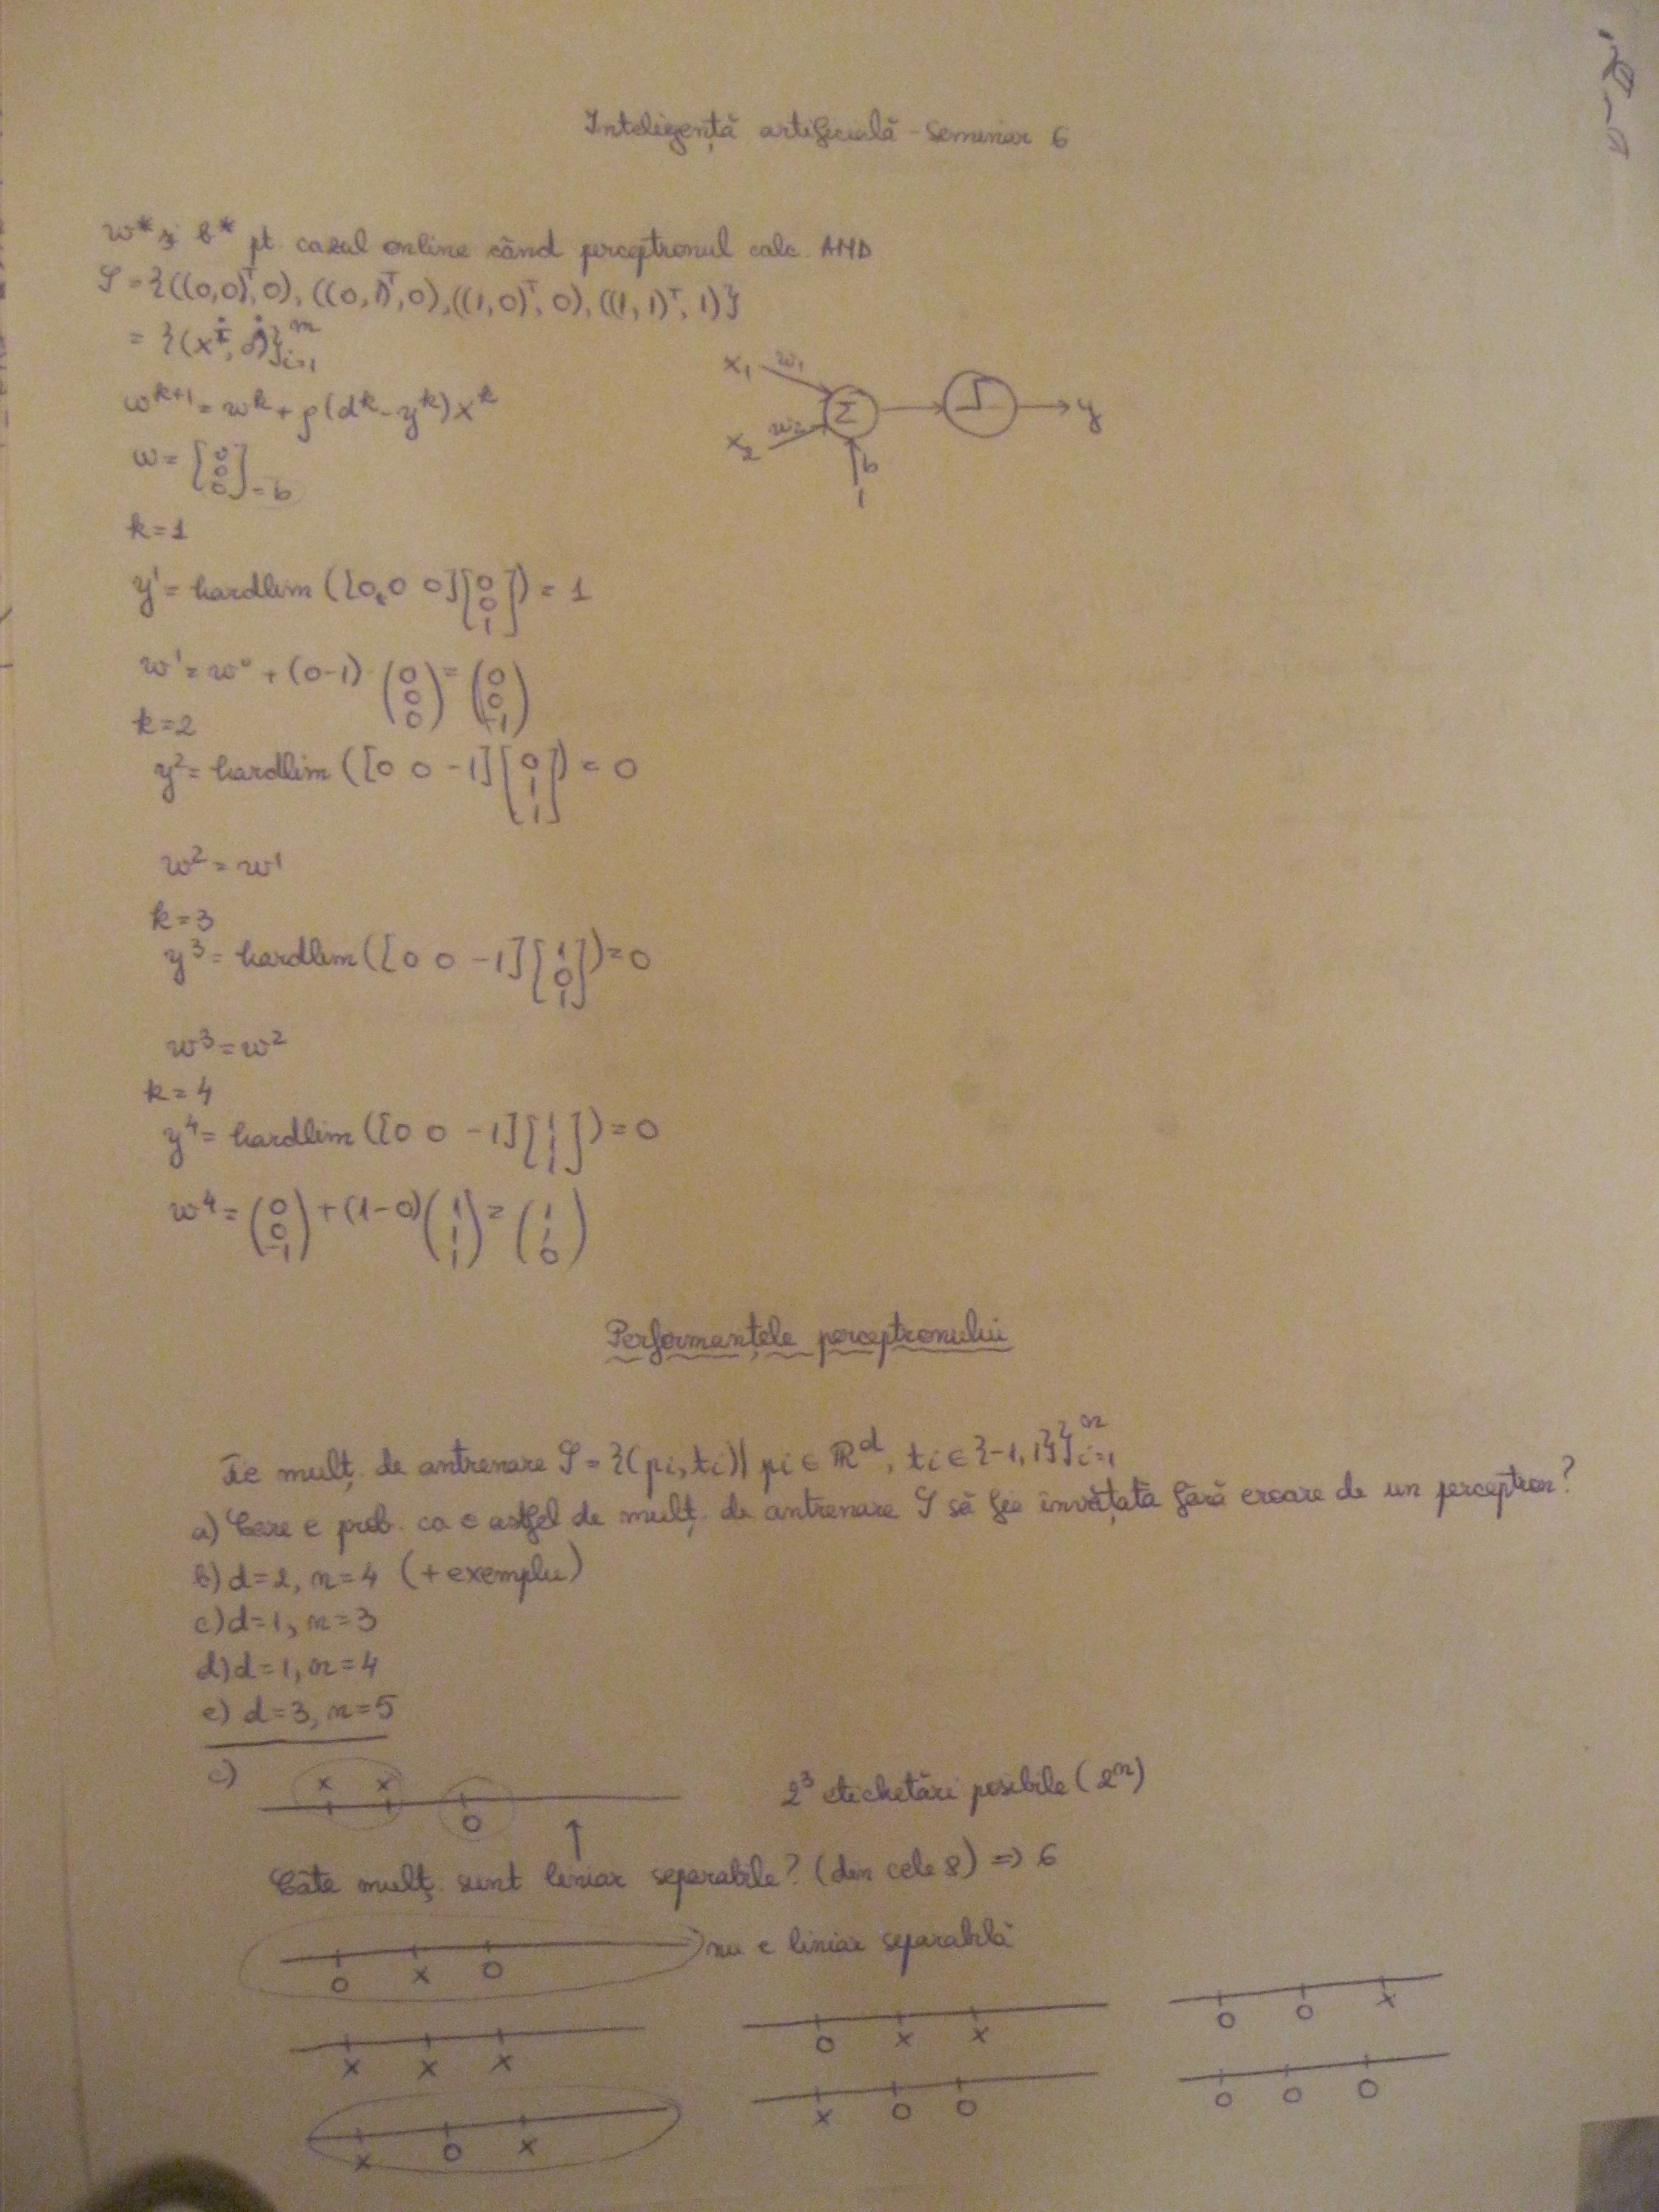 Inteligență artificială - Seminar 6
w* și b* pt. cazul online când perceptronul calc. AND
S = {((0,0)ᵀ, 0), ((0,1)ᵀ, 0), ((1,0)ᵀ, 0), ((1,1)ᵀ, 1)}
= {(xⁱ, dⁱ)}ᵢ₌₁ᵐ
wᵏ⁺¹ = wᵏ + ρ(dᵏ - yᵏ)xᵏ
x₁ w₁ Σ y
x₂ w₂ b 1
w = [0 0 0] = b
k=1
y¹ = hardlim ([0, 0 0][0 0 1]) = 1
w¹ = w⁰ + (0-1) · (0 0 0) = (0 0 -1)
k=2
y² = hardlim ([0 0 -1][0 1 1]) = 0
w² = w¹
k=3
y³ = hardlim ([0 0 -1][1 0 1]) = 0
w³ = w²
k=4
y⁴ = hardlim ([0 0 -1][1 1 1]) = 0
w⁴ = (0 0 -1) + (1-0)(1 1 1) = (1 1 0)
Performanțele perceptronului
Fie mulț. de antrenare S = {(pi, ti) | pi ∈ ℝᵈ, ti ∈ {-1, 1}}ᵢ₌₁ⁿ
a) Care e prob. ca o astfel de mulț. de antrenare S să fie învățată fără eroare de un perceptron?
b) d=2, n=4 (+exemplu)
c) d=1, n=3
d) d=1, n=4
e) d=3, n=5
c) x x o 2³ etichetări posibile (2ⁿ)
Câte mulț. sunt liniar separabile? (din cele 8) => 6
o x o nu e liniar separabilă
x x x o x x o o x
x o x x o o o o o